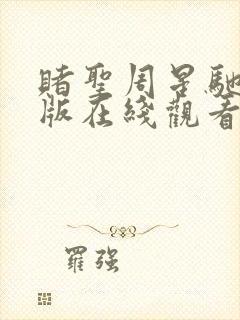 賭聖周星馳
版在綫觀看
羅強